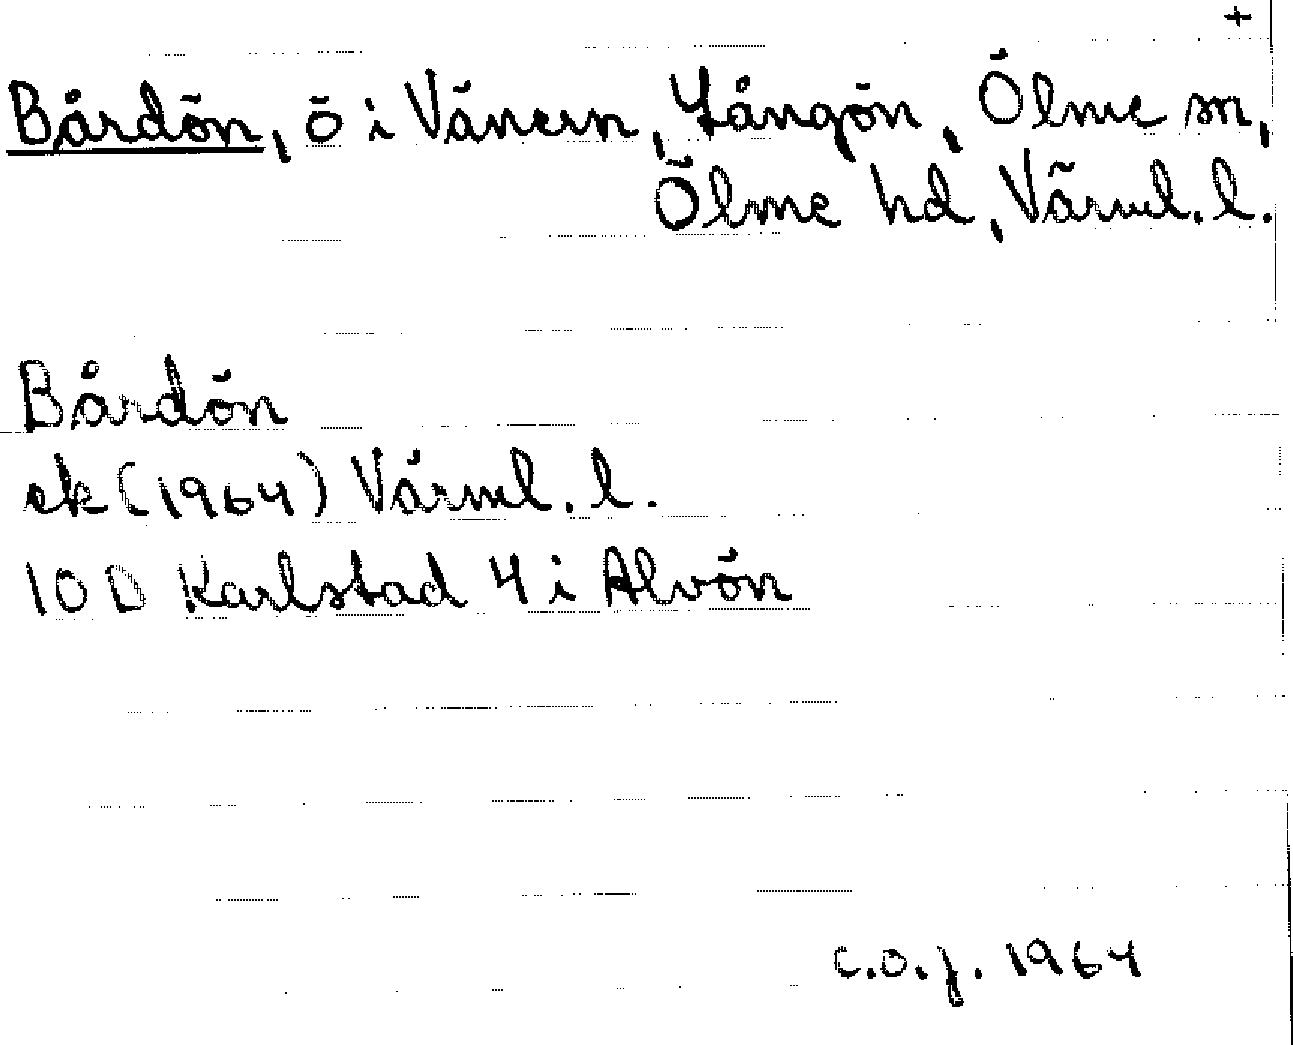 +
Bårdön, ö i Vänern, Långön, Ölme sn,
Ölme hd, Värml. l.
Bårdön
ek (1964) Värml. l.
10 D Karlstad 4 i Alvön
C.O.J. 1964